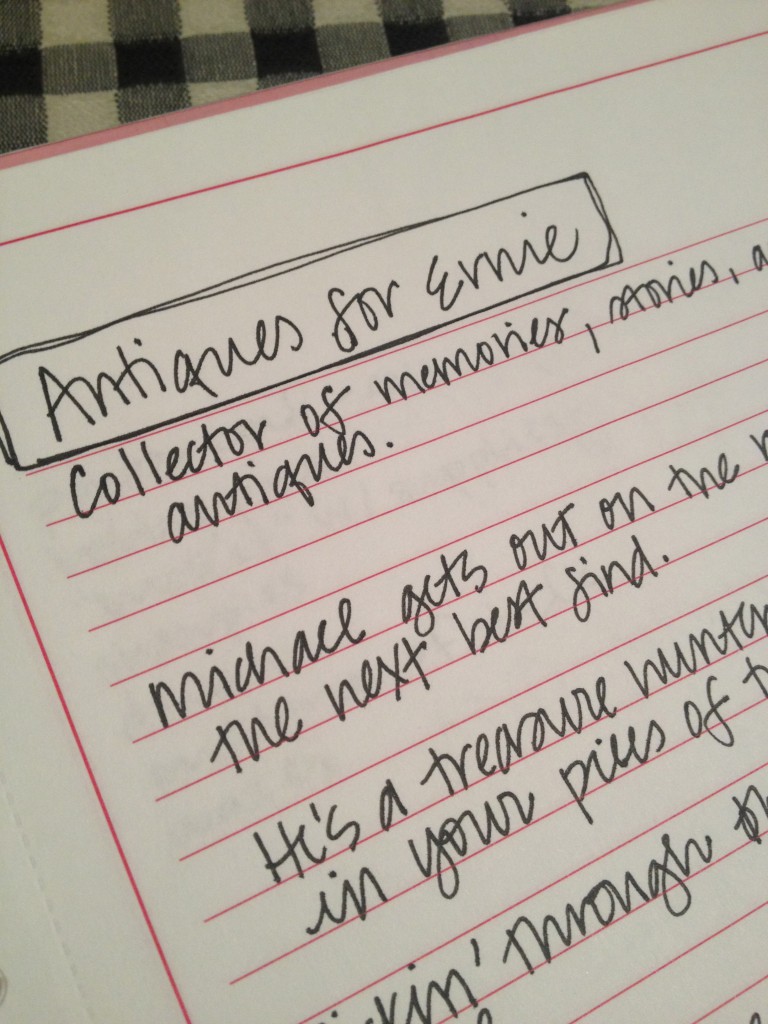 Antiques for Ernie
Collector of memories, stories,
antiques.
Michael gets out on the
the next best find.
He's a treasure hunter
in your piles of
through